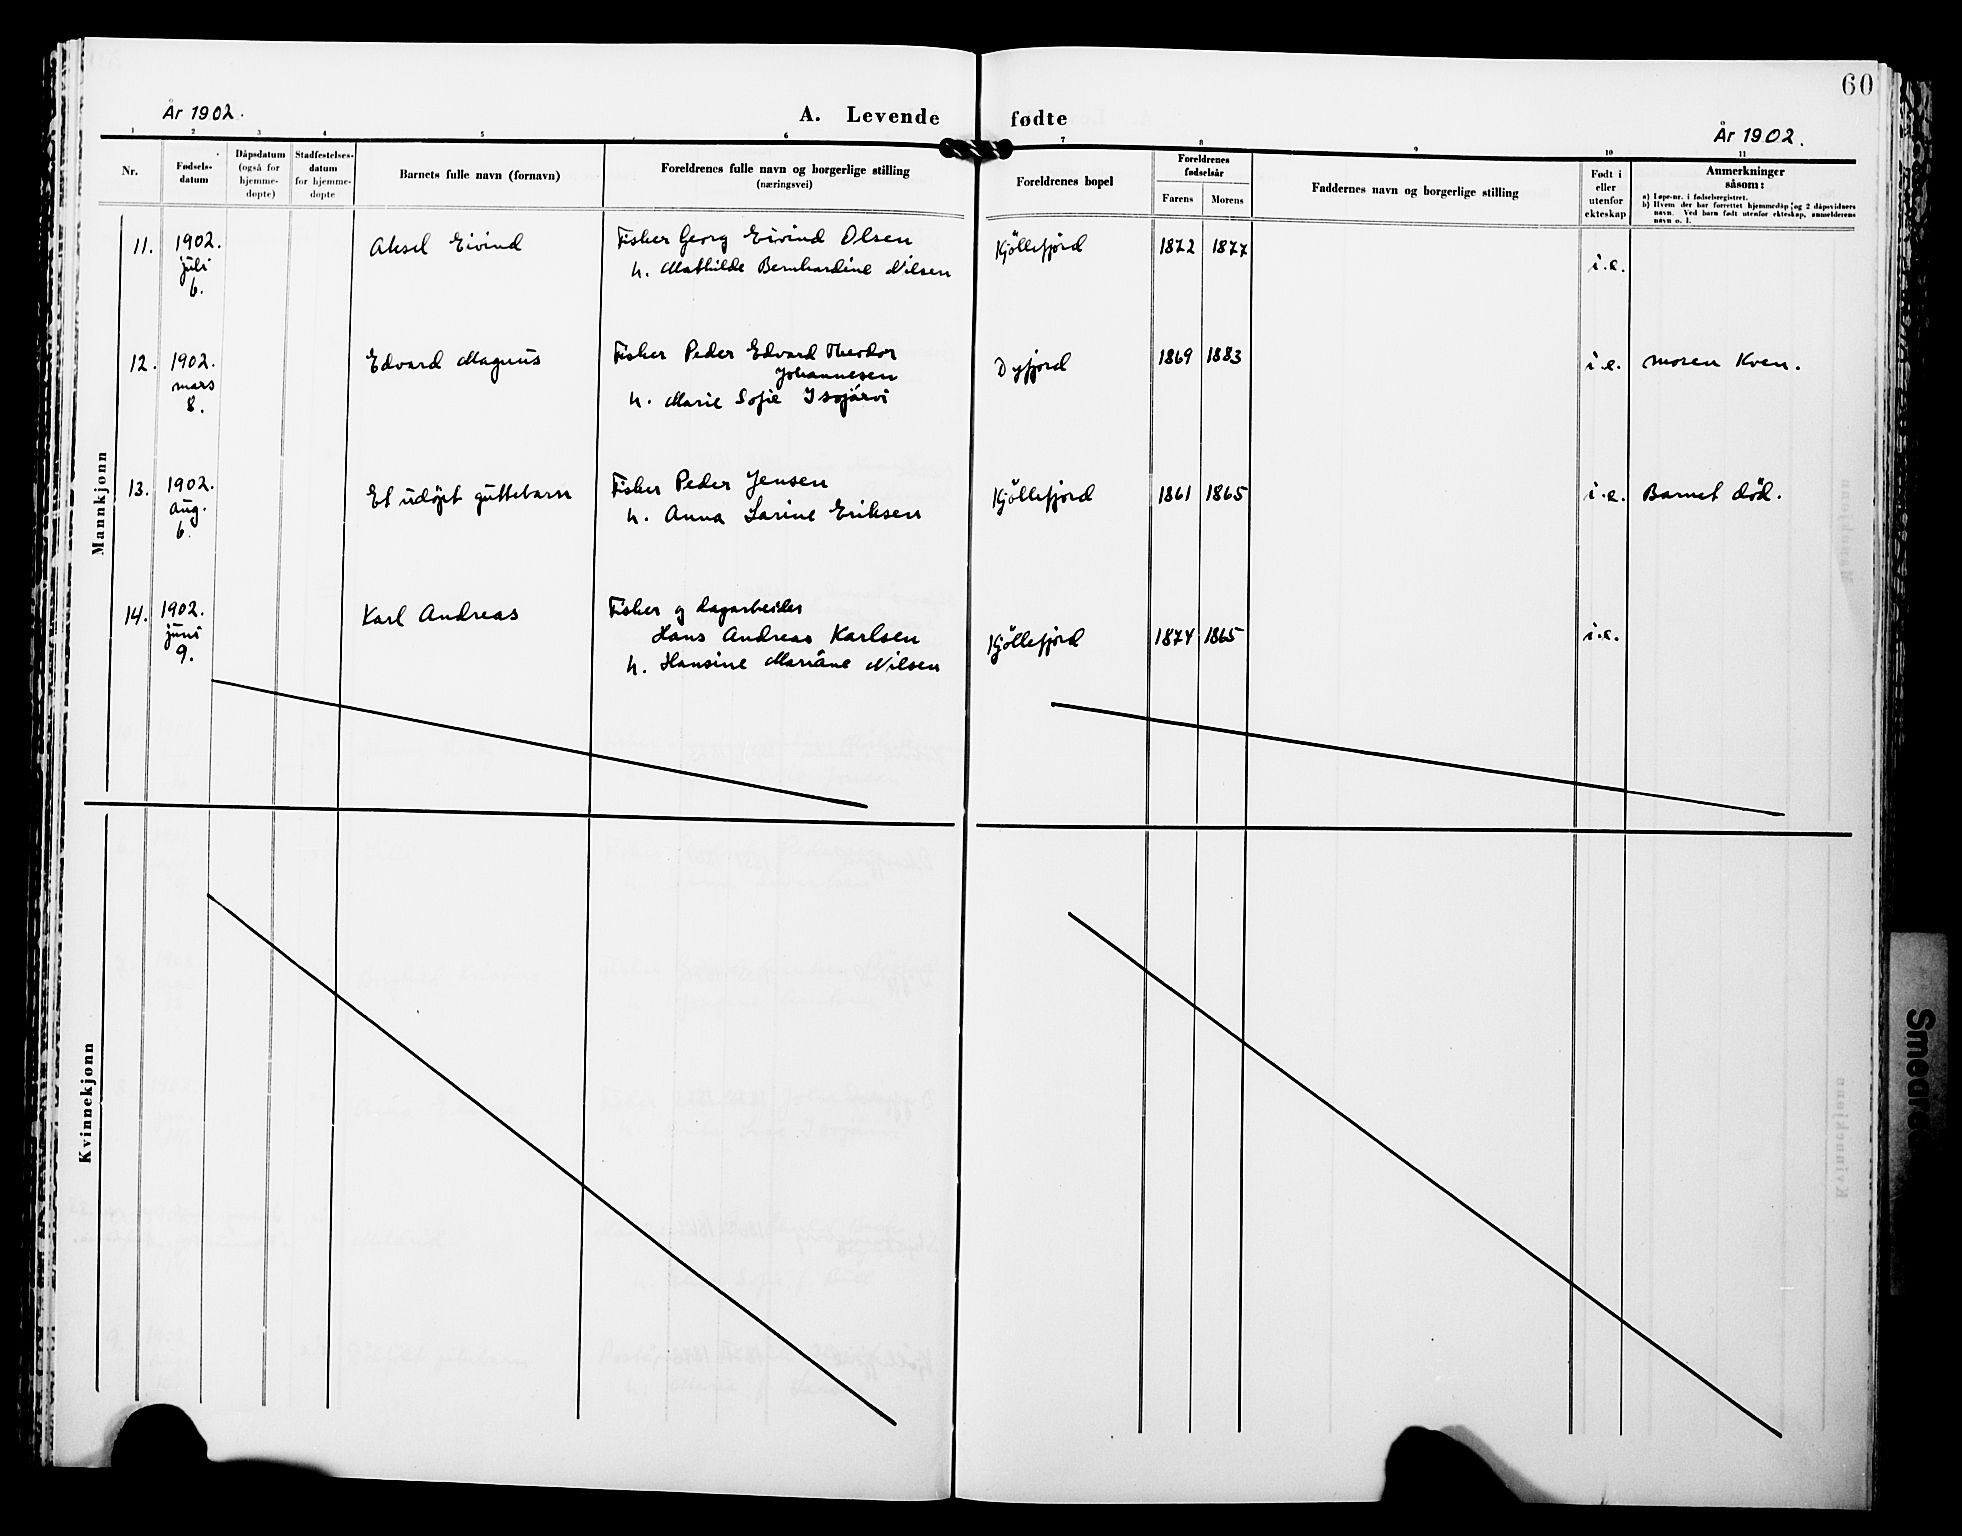 60
År 1902.
A. Levende fødte
År 1902.
1 2 3 4 5 6 7 8 9 10 11
Nr.
Fødsels-
datum
Dåpsdatum
(også for
hjemme-
døpte)
Stadfestelses-
datum
for hjemme-
døpte
Barnets fulle navn (fornavn)
Foreldrenes fulle navn og borgerlige stilling
(næringsvei)
Foreldrenes bopel
Foreldrenes
fødselsår
Farens Morens
Faddernes navn og borgerlige stilling
Født i
eller
utenfor
ekteskap
Anmerkninger
såsom:
a) Løpe-nr. i fødselsregistret.
b) Hvem der har forrettet hjemmedåp, og 2 dåpsvidners
navn. Ved barn født utenfor ekteskap, anmelderens
navn o. l.
Mannkjønn
11.
1902.
juli
6.
Aksel Eivind
Fisker Georg Eivind Olsen
h. Mathilde Bernhardine Nilsen
Kjøllefjord
1872 1877
i.e.
12.
1902.
mars
8.
Edvard Magnus
Fisker Peder Edvard Theodor
Johannesen
h. Marie Sofie Isojärvi
Dyfjord
1869 1883
i.e.
moren Kven.
13.
1902.
aug.
6.
Et udøpt guttebarn
Fisker Peder Jensen
h. Anna Sarine Eriksen
Kjøllefjord
1861 1865
i.e.
Barnet død.
14.
1902.
juni
9.
Karl Andreas
Fisker og dagarbeider
Hans Andreas Karlsen
h. Hansine Mariane Nilsen
Kjøllefjord
1874 1865
i.e.
Kvinnekjønn